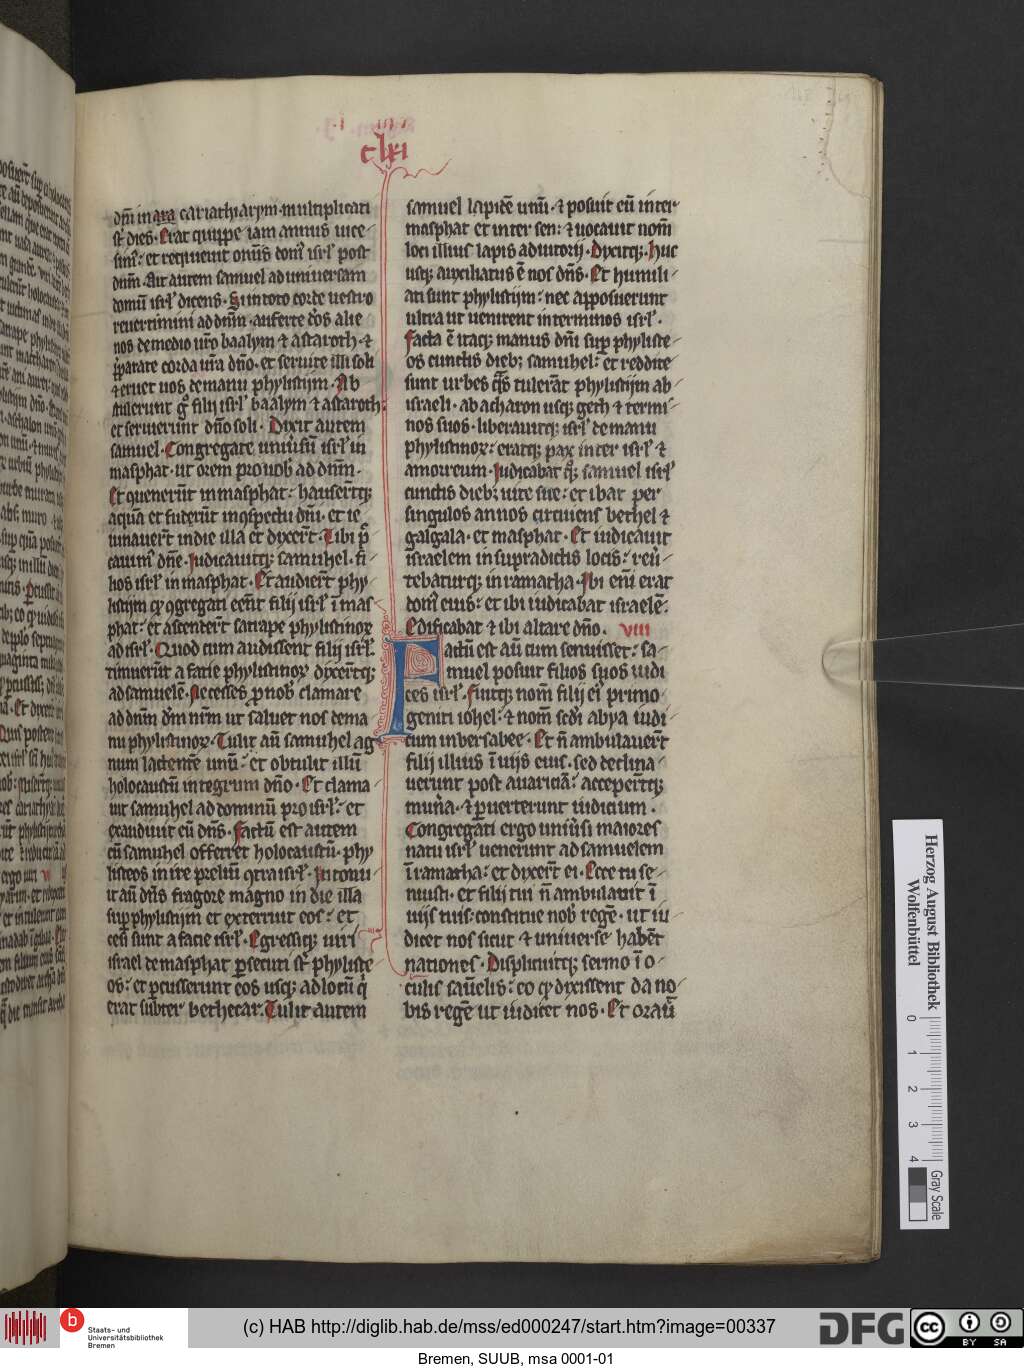 clxi
dnī in ara cariathiarym. multiplicati
st̄ dies. Erat quippe iam annus vice-
simꝰ. et requievit omīs domꝰ isrl̄ post
dnm̄. Ait autem samuel ad universam
domū isrl̄ dicens. Si in toto corde vestro
revertimini ad dnm̄. auferte d̄os alie
nos de medio vr̄o baalym ⁊ astaroth. ⁊
p̄parate corda vr̄a dn̄o. et servite illi soli
⁊ eruet vos de manu phylistijm. Ab
stulerunt gͦ filij isrl̄ baalym ⁊ astaroth.
et servierunt dn̄o soli. Dixit autem
samuel. Congregate univ̄sum isrl̄ in
masphat. ut orem pro vob̄ ad dnm̄.
Et quenerūt in masphat. hauserūtqꝫ
aquā et fuderūt in ꝯspectu dnī. et ie
iunaverūt in die illa et dyxerūt. Tibi p̄
cavimꝰ dn̄e. Judicavitqꝫ samuhel. fi
lios isrl̄ in masphat. Et audierūt phy-
listijm qꝫ ꝯgregati eēnt filij isrl̄ ī mas
phat. et ascenderūt satrape phylistinoꝝ
ad isrl̄. Quod cum audissent filij isrl̄.
timuerūt a facie phylistinoꝝ dyxerūtqꝫ
ad samuelē. Ne cesses ꝓ nob̄ clamare
ad dnm̄ dm̄ nrm̄ ut salvet nos de ma
nu phylistinoꝝ. Tulit aū samuhel ag
num lactentē unū. et obtulit illū
holocaustū integrum dn̄o. Et clama-
vit samuhel ad dominū pro isrl̄. et
exaudivit eū dn̄s. Factū est autem
cū samuhel offerret holocaustū. phy
listeos inire preliū ꝯtra isrl̄. Intonu-
it aū dn̄s fragore magno in die illa
sup̄ phylistijm et exterruit eos. et
cesi sunt a facie isrl̄. Egressiqꝫ viri
israel de masphat ꝑsecuti st̄ phyliste
os. et ꝑcusserunt eos usqꝫ ad locū qi
erat subter bethecar. Tulit autem
samuel lapidē unū. ⁊ posuit eū inter
masphat et inter sen. ⁊ vocavit nom̄
loci illius lapis adiutorij. Dyxitqꝫ. Huc
usqꝫ auxiliatus ē nos dn̄s. Et humili-
ati sunt phylistijm. nec apposuerunt
ultra ut venirent in terminos isrl̄.
Facta ē itaqꝫ manus dnī sup̄ phyliste-
os cunctis diebꝫ samuhel. et reddite
sunt urbes qas tulerāt phylistijm ab-
israeli. ab acharon usqꝫ geth ⁊ termi-
nos suos. liberavitqꝫ isrl̄ de manu
phylistinoꝝ. eratqꝫ pax inter isrl̄ ⁊
amorreum. Judicabat qꝫ samuel isrl̄
cunctis diebꝫ vite sue. et ibat per
singulos annos circuiens bethel ⁊
galgala. et masphat. Et iudicavit
israelem in supradictis locis. rev̄-
tebaturqꝫ in ramatha. Ibi enī erat
domꝰ eius. et ibi iudicabat israelē.
Edificabat ⁊ ibi altare dn̄o. VIII
Factū est aū cum senuisset. sa-
muel posuit filios suos iudi
ces isrl̄. Fuitqꝫ nom̄ filij eiꝰ primo
geniti iohel. ⁊ nom̄ scd̄i abya iudi-
cum in bersabee. Et n̄ ambulaverūt
filij illius ī vijs eius. sed declina-
verunt post avariciā. acceperūtqꝫ
mun̄a. ⁊ ꝑverterunt iudicium.
Congregati ergo univ̄si maiores
natu isrl̄ venerunt ad samuelem
ī ramatha. et dyxerūt ei. Ecce tu se-
nuisti. et filij tui n̄ ambulant ī
vijs tuis. constitue nob̄ regē. ut iu-
dicet nos sicut ⁊ universe habēt
nationes. Displicuitqꝫ sermo ī o-
culis sam̄elis. eo qꝫ dyxissent da no-
bis regē ut iudicet nos. Et orav̄
Herzog August Bibliothek
Wolfenbüttel
0 1 2 3 4
Gray Scale
b
Staats- und
Universitätsbibliothek
Bremen
(c) HAB http://diglib.hab.de/mss/ed000247/start.htm?image=00337
DFG
cc BY SA
Bremen, SUUB, msa 0001-01